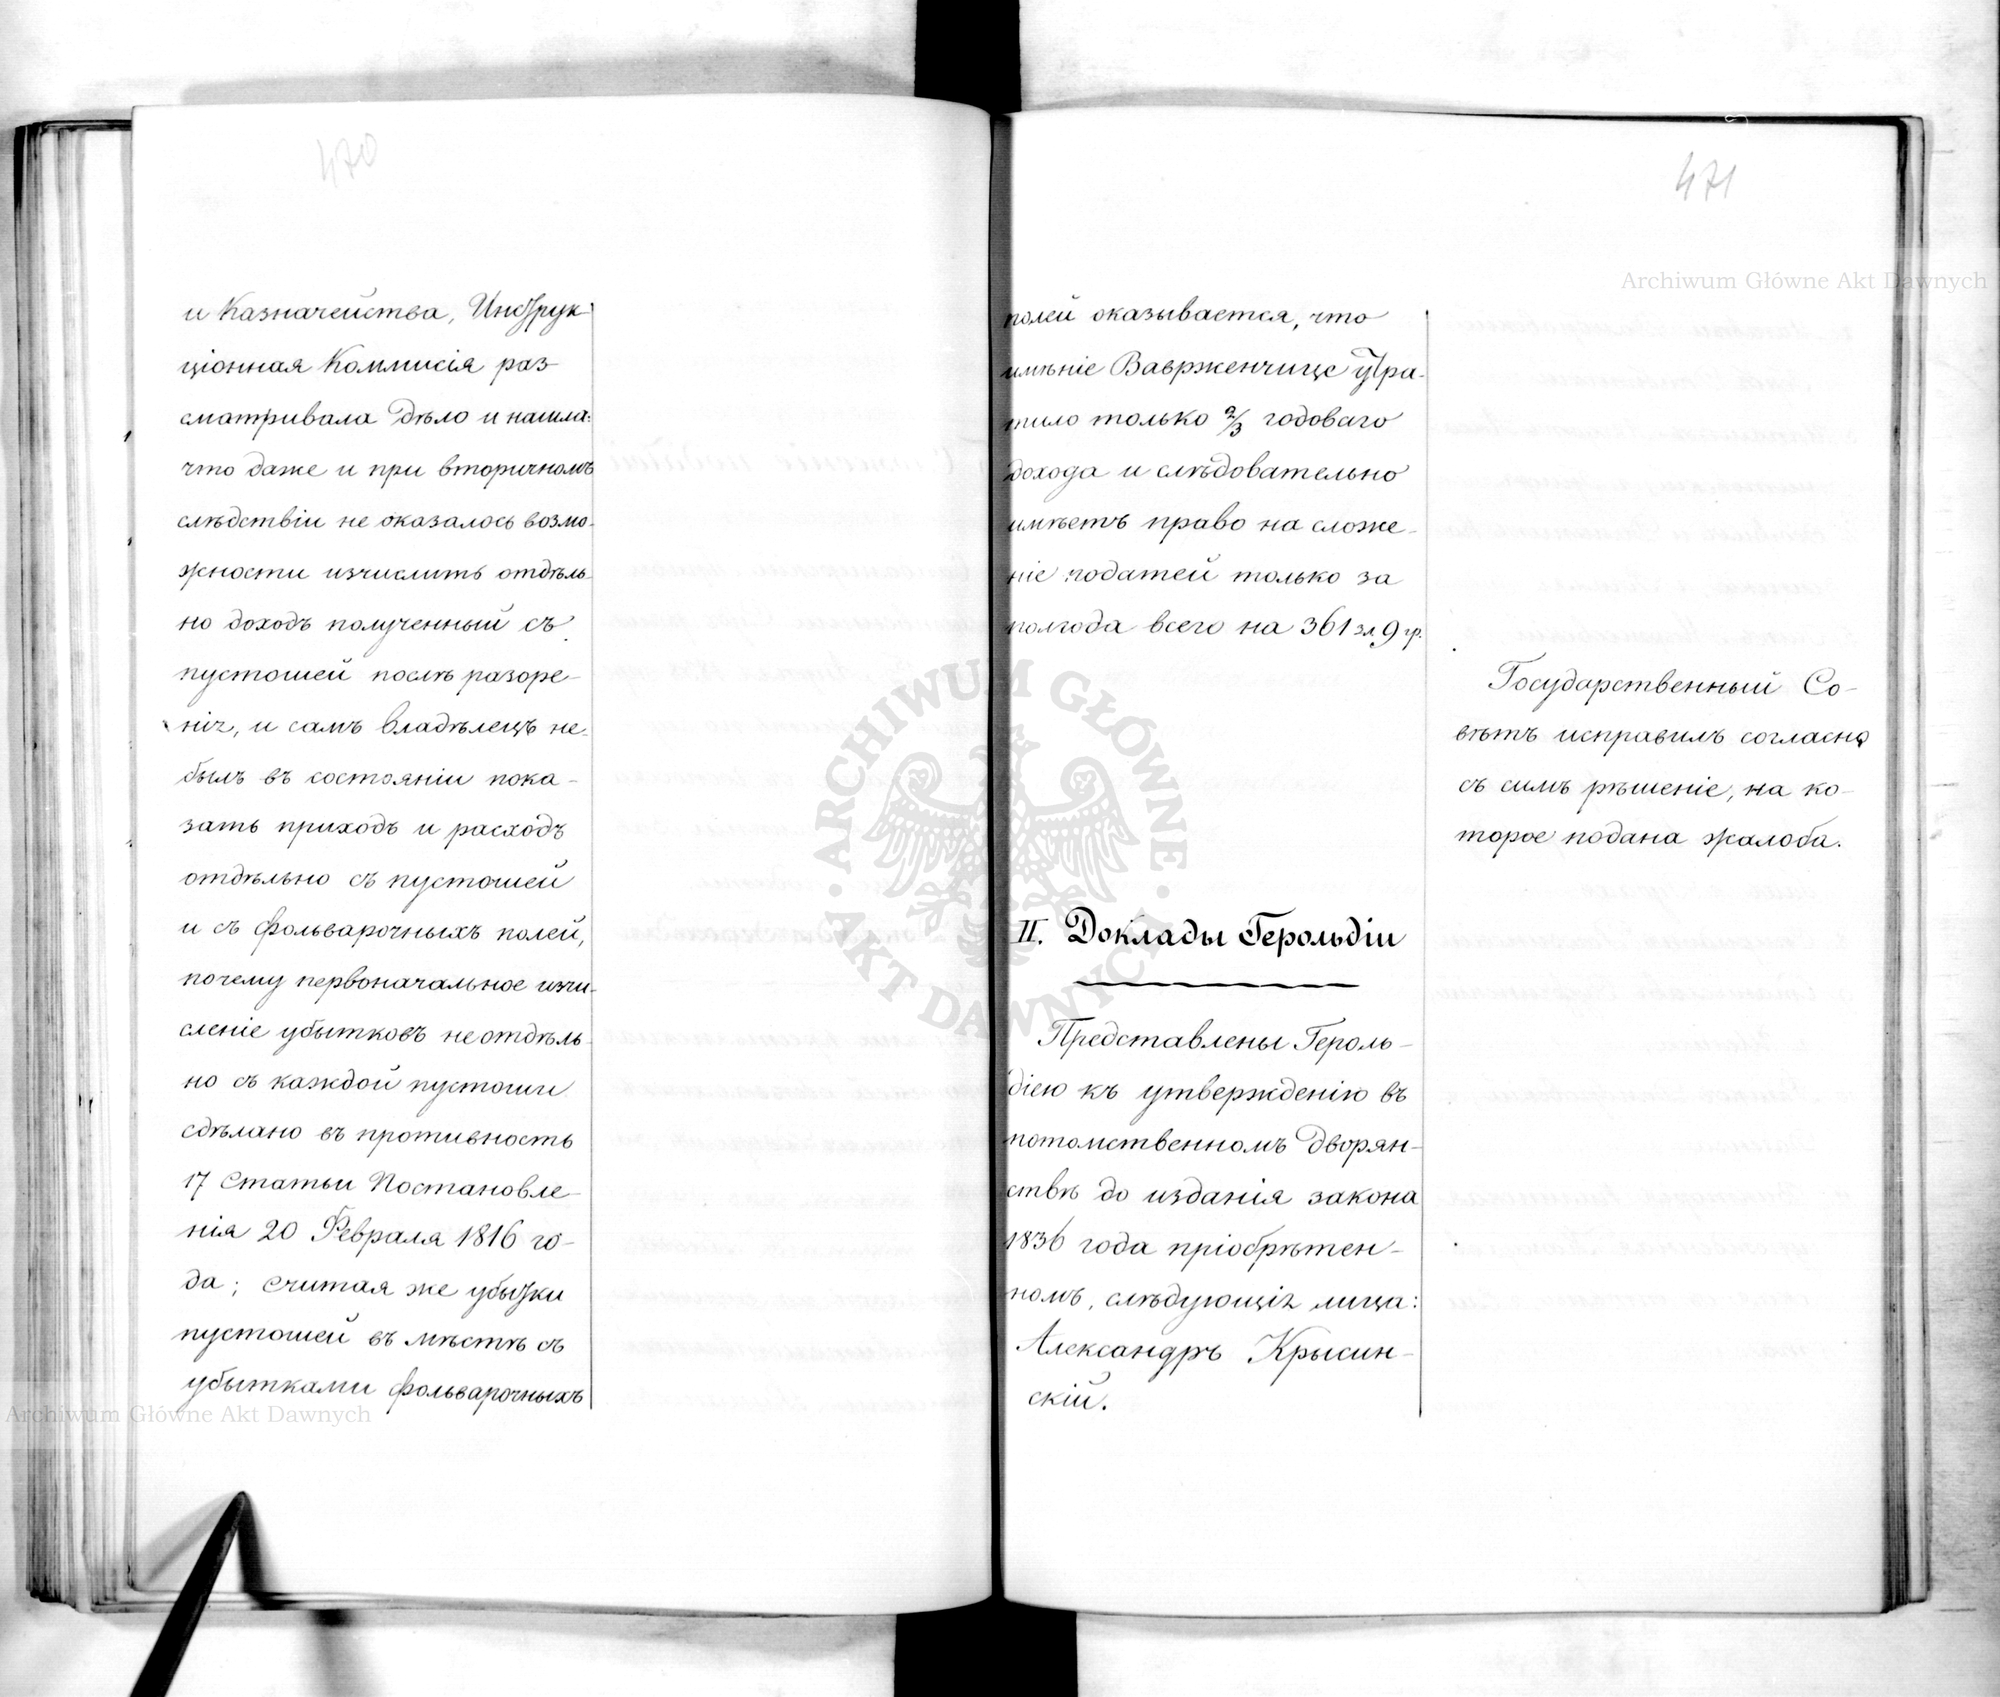 470
и Казначейства, Инструк-
ціонная Коммисія раз-
сматривала дѣло и нашла:
что даже и при вторичномъ
слѣдствіи не оказалось возмо-
жности изчислить отдѣль-
но доходъ полученный съ
пустошей послѣ разоре-
нія, и самъ владѣлецъ не-
былъ въ состояніи пока-
зать приходъ и расходъ
отдѣльно съ пустошей
и съ фольварочныхъ полей,
почему первоначальное изчи-
сленіе убытковъ не отдѣль-
но съ каждой пустоши
сдѣлано въ противность
17 Статьи Постановле-
нія 20 Февраля 1816 го-
да; считая же убытки
пустошей въ мѣстѣ съ
убытками фольварочныхъ
471
полей оказывается, что
имѣніе Вавржен­чице утра-
тило только 2/3 годоваго
дохода и слѣдовательно
имѣетъ право на сложе-
ніе податей только за
полгода всего на 361 зл 9 гр.
Государственный Со-
вѣтъ исправилъ согласно
съ симъ рѣшеніе, на ко-
торое подана жалоба.
II. Доклады Герольдіи
Представлены Героль-
діею къ утвержденію въ
потомственномъ дворян-
ствѣ до изданія закона
1836 года пріобрѣтен-
номъ, слѣдующія лица:
Александръ Крысин-
скій.
Archiwum Główne Akt Dawnych
ARCHIWUM GŁÓWNE · AKT DAWNYCH ·
Archiwum Główne Akt Dawnych